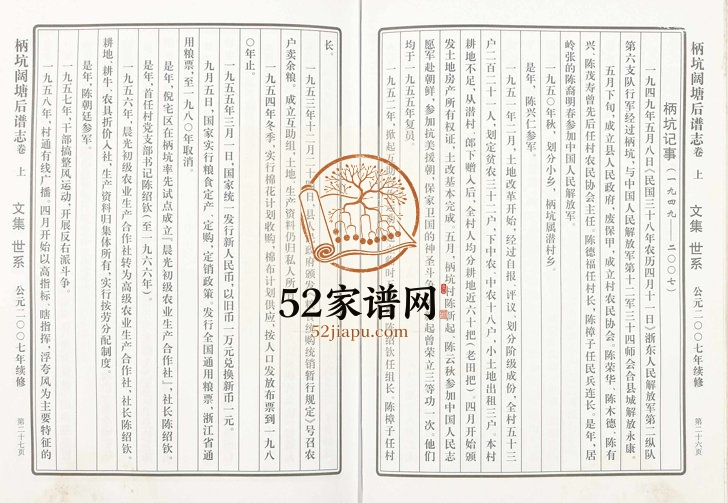 柄坑阔塘后谱志 卷 上 文集 世系 公元二〇〇七年续修 第二十六页
柄坑记事（一九四九——二〇〇七）
一九四九年五月八日《民国三十八年农历四月十一日》浙东人民解放军第二纵队
第六支队行军经过柄坑，与中国人民解放军第十二军三十四师会合县城解放永康。
五月下旬，成立县人民政府，废保甲，成立村农民协会。陈荣华、陈木德、陈有
兴、陈茂寿曾先后任村农民协会主任，陈德福任村长，陈樟子任民兵连长。是年，居
岭张的陈裔明春参加中国人民解放军。
一九五〇年秋，划分小乡，柄坑属潜村乡。
是年，陈兴仁参军。
一九五一年二月，土地改革开始，经过自报、评议，划分阶级成份，全村五十三
户二百二十一人，划定贫农三十二户，下中农、中农十八户，小土地出租三户，本村
耕地不足，从潜村、郎下赠入后，全村人均分耕地近六十把（老田把）。四月开始颁
发土地房产所有权证，土改基本完成。五月，柄坑村陈新起、陈云秋参加中国人民志
愿军赴朝鲜，参加抗美援朝，保家卫国的神圣斗争 起曾荣立三等功一次。他们
均于一九五五年复员。
一九五二年，掀起 时 陈绍钦任组长。陈樟子任村
长。
一九五三年十一月二十 日，县人 政府颁发 统购统销暂行规定》号召农
户卖余粮。成立互助组，土地、生产资料仍归私人所
一九五四年冬季，实行棉花计划收购，棉布计划供应，按人口发放布票到一九八
〇年止。
一九五五年三月一日，国家统一发行新人民币，以旧币一万元兑换新币一元。
九月五日，国家实行粮食定产、定购、定销政策。发行全国通用粮票，浙江省通
用粮票，至一九八〇年取消。
是年，倪宅区在柄坑率先试点成立『晨光初级农业生产合作社』，社长陈绍钦。
是年，首任村党支部书记陈绍钦（至一九六六年）。
一九五六年，晨光初级农业生产合作社转为高级农业生产合作社，社长陈绍钦。
耕地、耕牛、农具折价入社，生产资料归集体所有，实行按劳分配制度。
是年，陈朝廷参军。
一九五七年，干部搞整风运动，开展反右派斗争。
一九五八年，村通有线广播。四月开始以高指标、瞎指挥、浮夸风为主要特征的
柄坑阔塘后谱志 卷 上 文集 世系 公元二〇〇七年续修 第二十七页
52家谱网
52jiapu.com